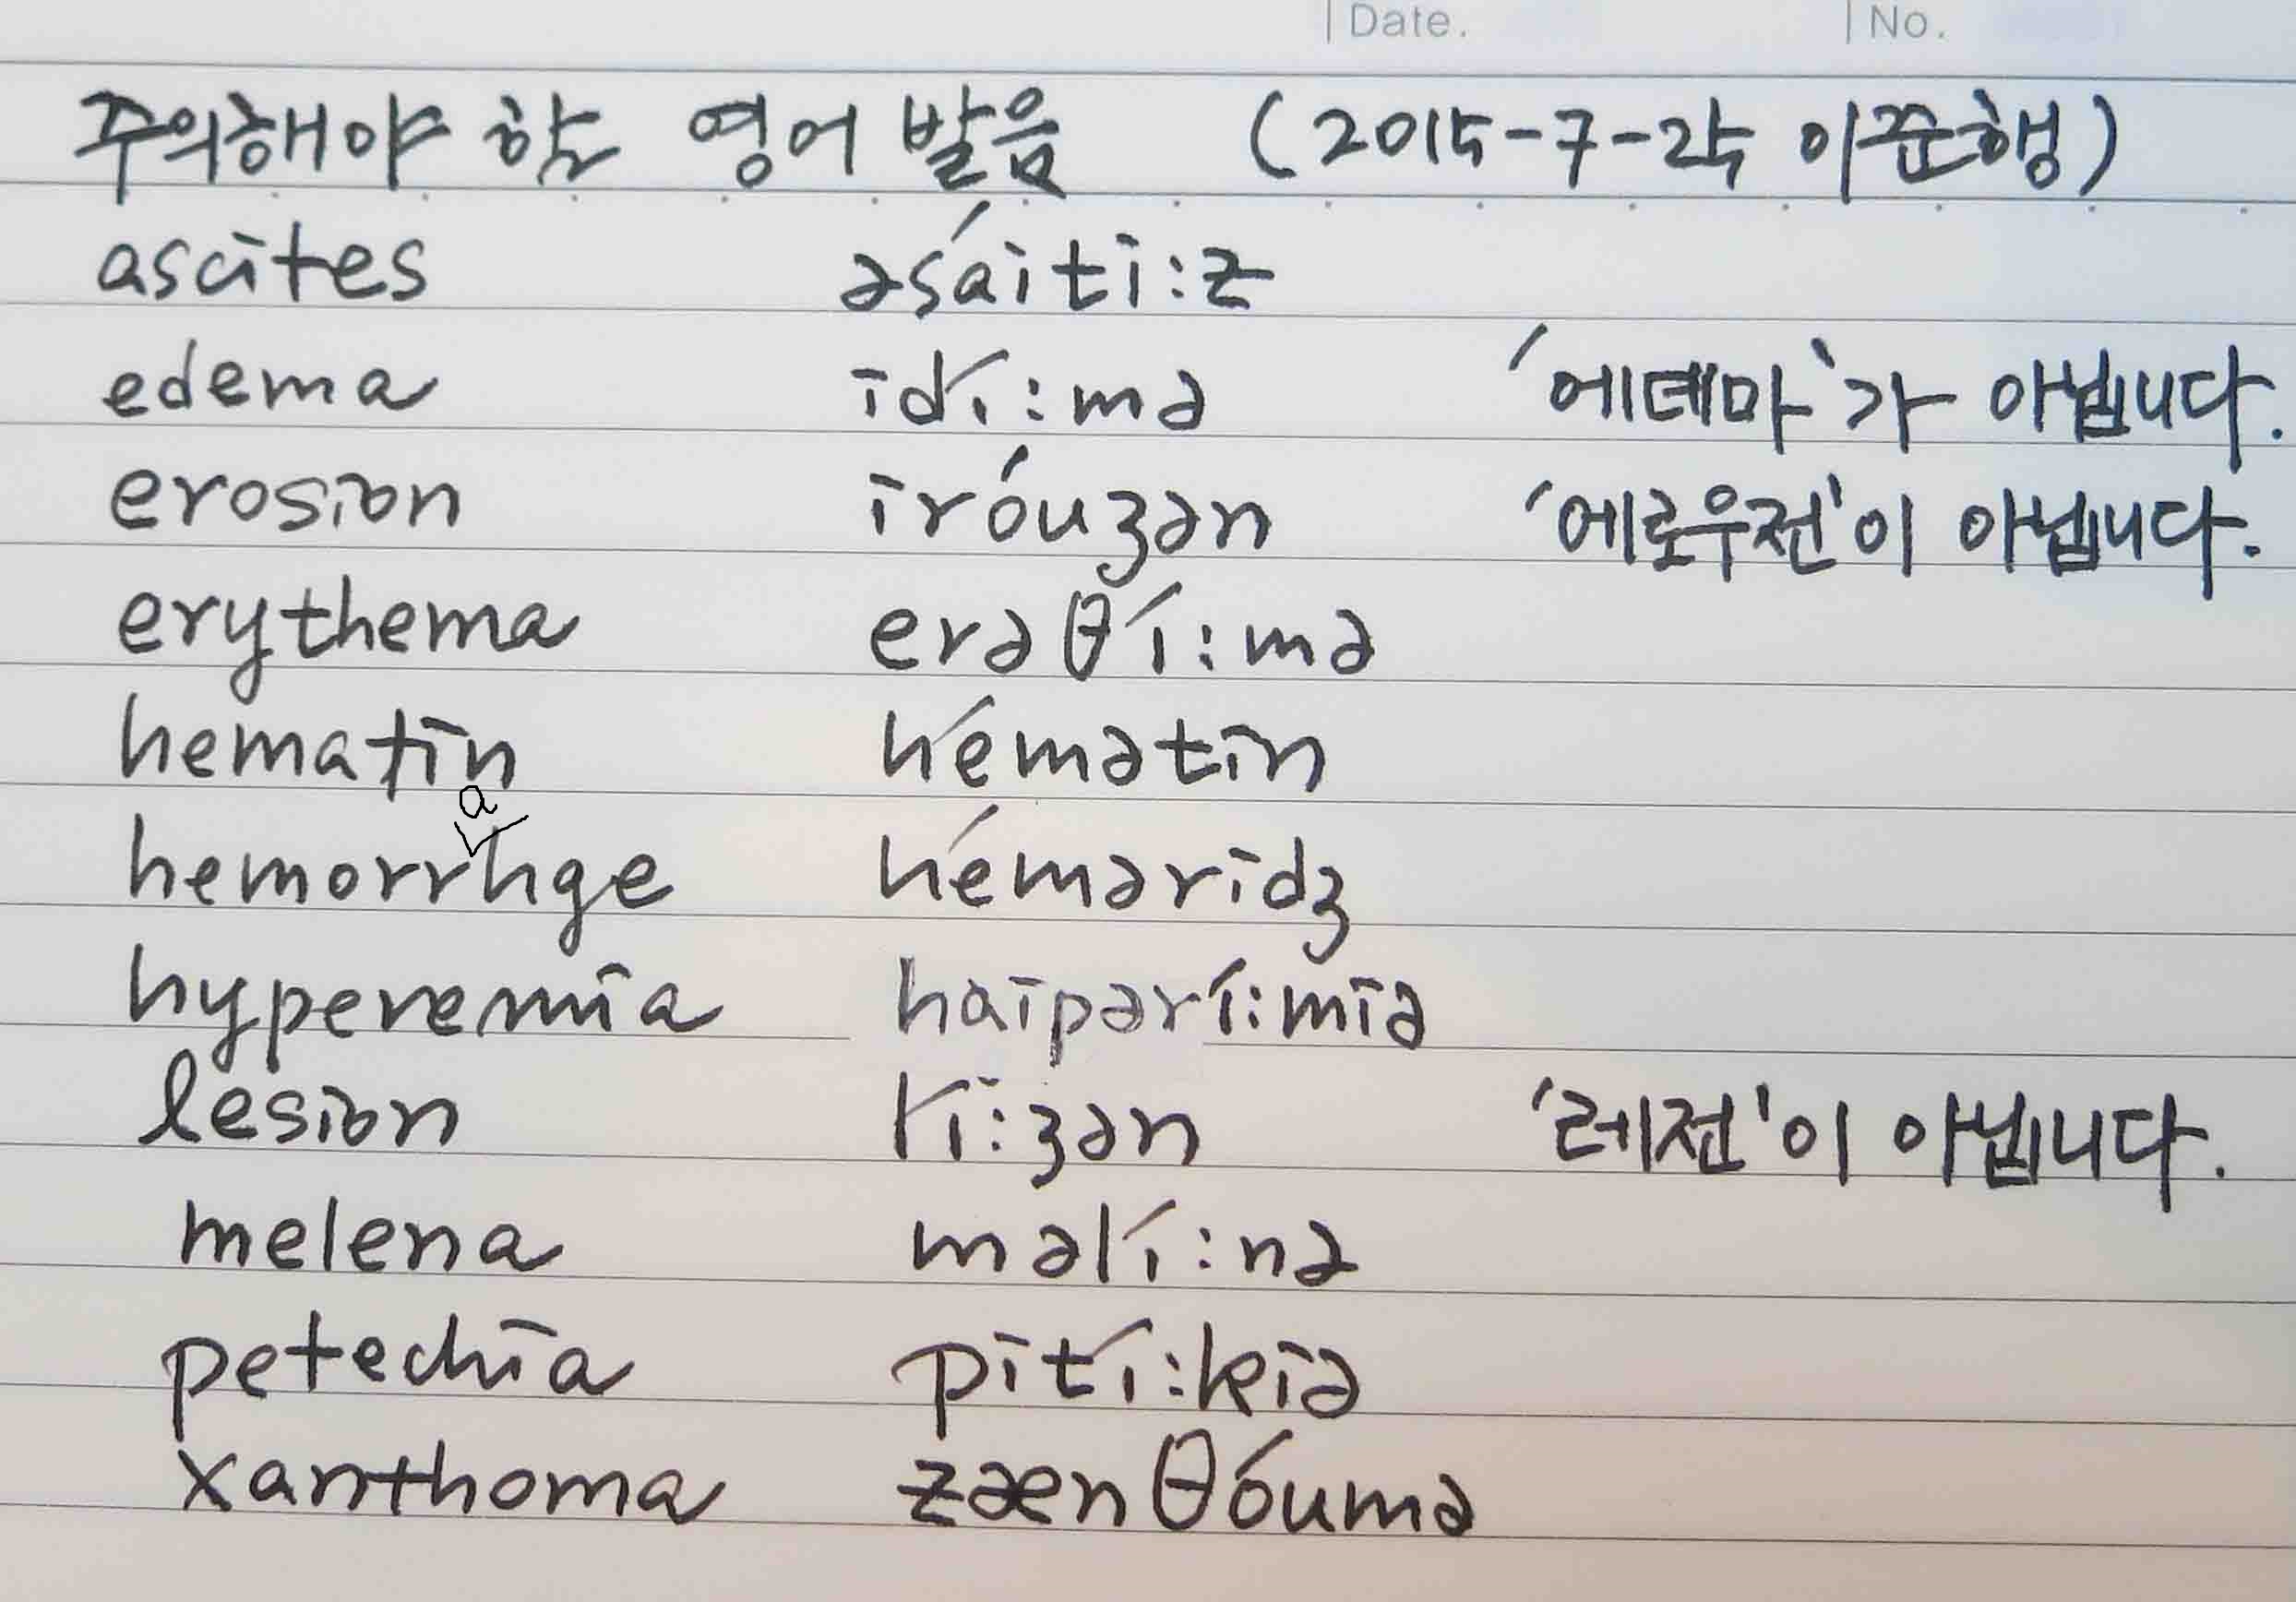 Date. No.
주의해야 할 영어 발음 (2015-7-25 이준행)
ascites əsáiti:z
edema idí:mə '에데마'가 아닙니다.
erosion iróuʒən '에로우젼'이 아닙니다.
erythema erəθí:mə
hematin hémətin
hemorrhage héməridʒ
hyperemia haipərí:miə
lesion lí:ʒən '레젼'이 아닙니다.
melena məlí:nə
petechia pití:kiə
xanthoma zænθóumə